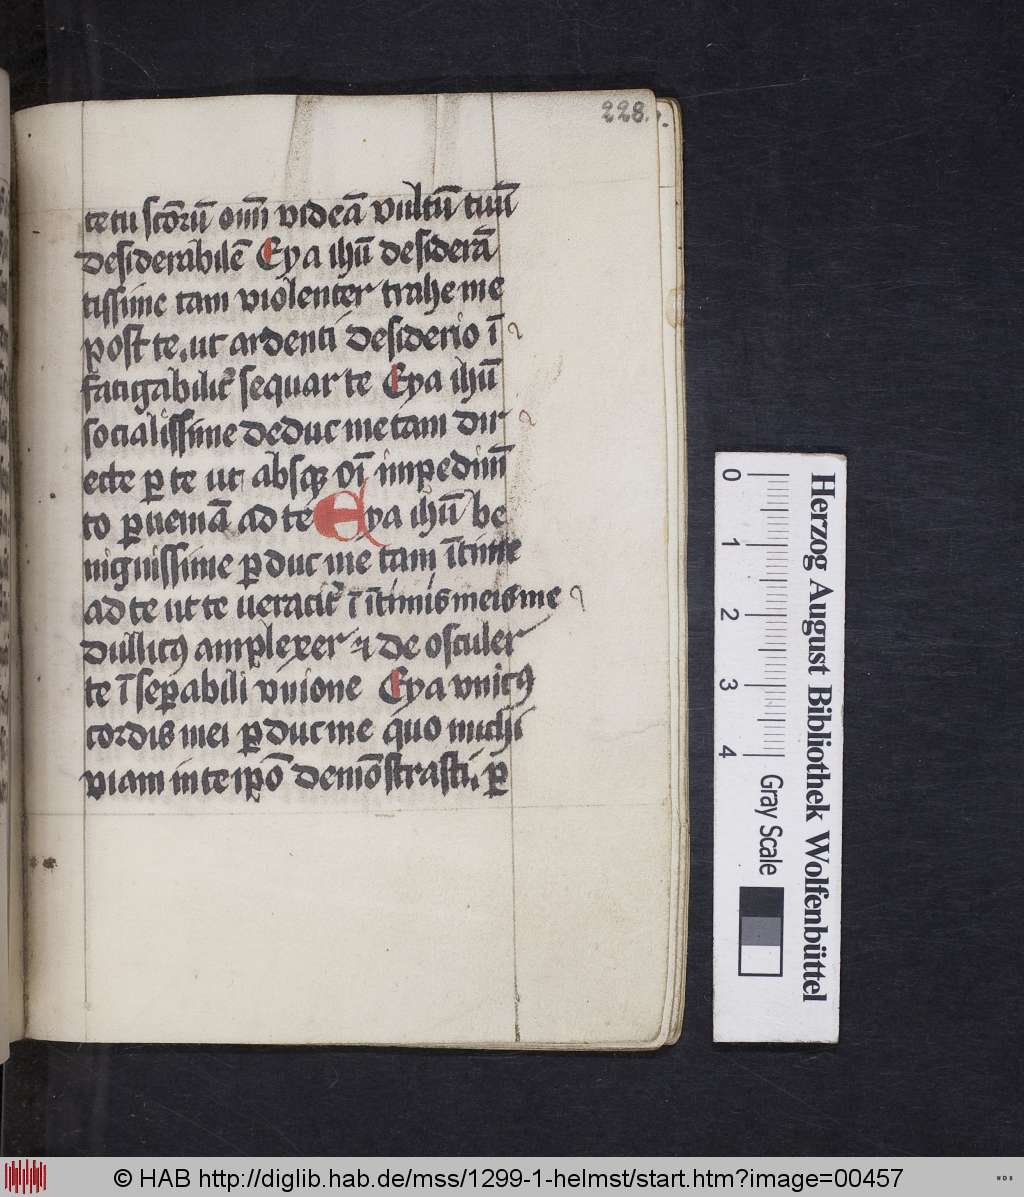 228.
te tu sco᷑rū om̄ı videā vultū tuū
desiderabilē Eya ihū desiderā
tissime tam violenter trahe me
post te. ut ardenti desiderio ī
fatigabilit͛ sequar te Eya ihū
socialissime deduc me tam dir
ecte ꝑ te ut absqꝫ oī impedim̄
to ꝑueniā ad te Eya ihū be
nignissime ꝑduc me tam ītime
ad te ut te ueracit͛ ī ītimis meis me
dullitꝰ amplexer ⁊ de osculer
te īseꝑabili vnione Eya vnicꝰ
cordis mei ꝑduc me quo michi
viam in te ip̄o demōstrasti. ꝑ
Herzog August Bibliothek Wolfenbüttel
0 1 2 3 4 Gray Scale
© HAB http://diglib.hab.de/mss/1299-1-helmst/start.htm?image=00457